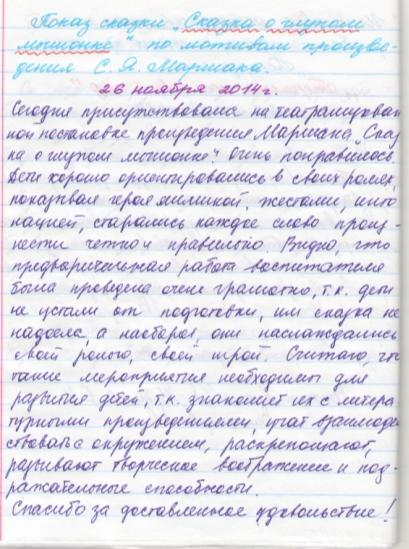 Показ сказки „Сказка о глупом
мышонке" по мотивам произве-
дения С. Я. Маршака.
26 ноября 2014г.
Сегодня присутствовала на театрализован
ной постановке произведения Маршака „Сказ
ка о глупом мышонке". Очень понравилось.
Дети хорошо ориентировались в своих ролях,
показывая героя мимикой, жестами, инто
нацией, старались каждое слово произ-
нести четко и правильно. Видно, что
предварительная работа воспитателя
была проведена очень грамотно, т.к. дети
не устали от подготовки, им сказка не
надоела, а наоборот, они наслаждались
своей ролью, своей игрой. Считаю, что
такие мероприятия необходимы для
развития детей, т.к. знакомит их с литера
турными произведениями, учат взаимодей
ствовать с окружением, раскрепощают,
развивают творческое воображение и под-
ражательные способности.
Спасибо за доставленное удовольствие!